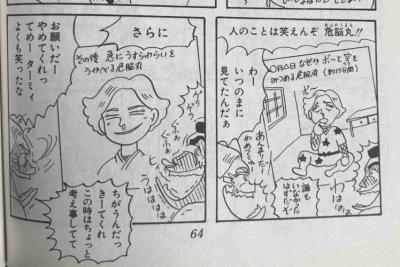 人のことは笑えんぞ
危脳丸!!
〇月〇日 なぜか ボ〜と 空を
みつめる危脳丸 (約15分間)
ボ〜
わー
いつのまに
見てたんだぁ
あんまりだー
やめてくれー
誰も
いなかった
はずだぞー
わはは
さらに
その後 急にうすらわらいを
うかべる危脳丸
お願いだー
やめてくれっ
てめーターミィ
よくも笑ったな
ぐふふ
ぐふぁ
ヒィ〜
うはははは
ちがうんだっ
きーてくれ
この時はちょっと
考え事してて
64